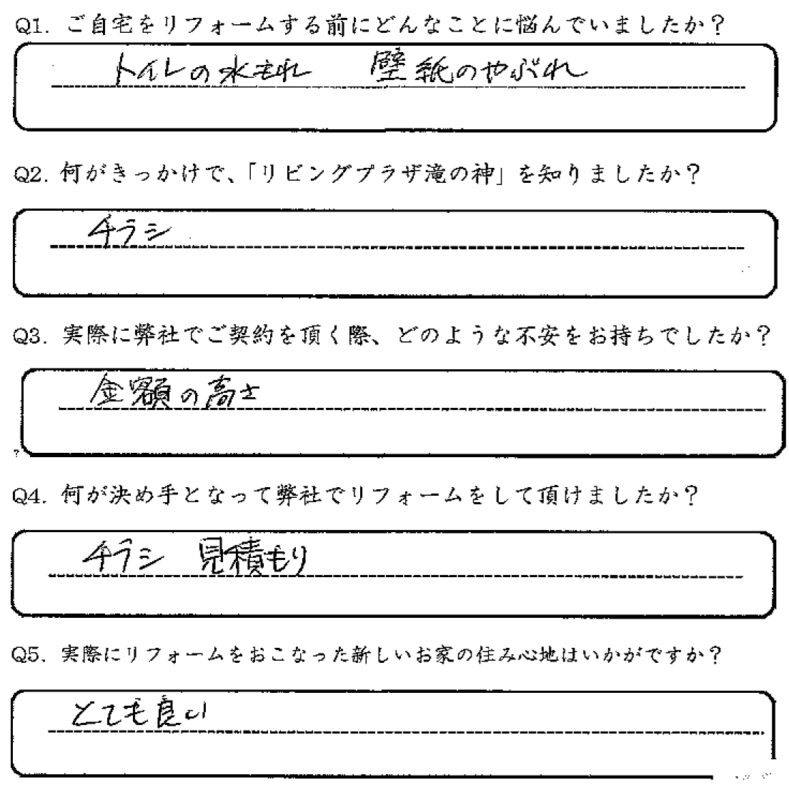 Q1. ご自宅をリフォームする前にどんなことに悩んでいましたか？
トイレの水もれ　壁紙のやぶれ
Q2. 何がきっかけで、「リビングプラザ滝の神」を知りましたか？
チラシ
Q3. 実際に弊社でご契約を頂く際、どのような不安をお持ちでしたか？
金額の高さ
Q4. 何が決め手となって弊社でリフォームをして頂けましたか？
チラシ　見積もり
Q5. 実際にリフォームをおこなった新しいお家の住み心地はいかがですか？
とても良い